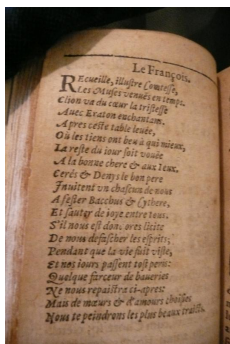 Le François.
REcueille, illustre Comtesse,
Les Muses venuës en temps.
Clion va du cœur la tristesse
Auec Eraton enchantant.
Apres ceste table leuée,
Où les tiens ont beu à qui mieux,
La reste du iour soit vouée
A la bonne chere & aux Ieux.
Cerés & Denys le bon pere
Inuitent vn chascun de nous
A fester Bacchus & Cythere,
Et sauter de ioye entre tous.
S'il nous est donc ores licite
De nous defascher les esprits,
Pendant que la vie fuit viste,
Et nos iours passent tost
Quelque farceur de baueries
Ne nous repaistra ci-apres:
Mais de mœurs & d'amours choisies
Nous te peindrons les plus beaux traicts.